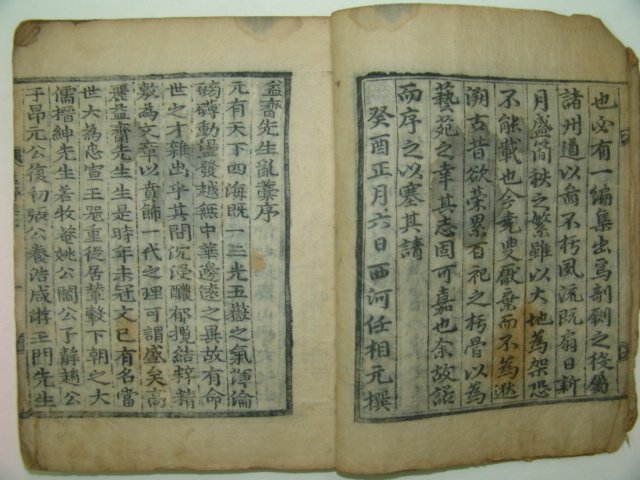 也必有一編集出焉剞劂之役屬
諸州通以啚不朽風流既扇日新
月盛簡秩之繁雖以大地為架恐
不能載也今叟厭棄而不為逖
溯古昔欲榮累百祀之朽骨以為
藝苑之幸其志固可嘉也余故諾
而序之以塞其請
癸酉正月六日西河任相元撰
益齋先生亂藁序
元有天下四海既一三光五嶽之氣渾淪
磅礴動盪發越無中華邊遠之異故有命
世之才雜出乎其間沉浸醲郁攬結粹精
敷為文章以賁飾一代之理可謂盛矣高
麗益齋先生生是時年未冠文已有名當
世大為忠宣王器重從居輦轂下朝之大
儒搢紳先生若牧菴姚公閻公子靜趙公
子昂元公復初張公養浩咸游王門先生